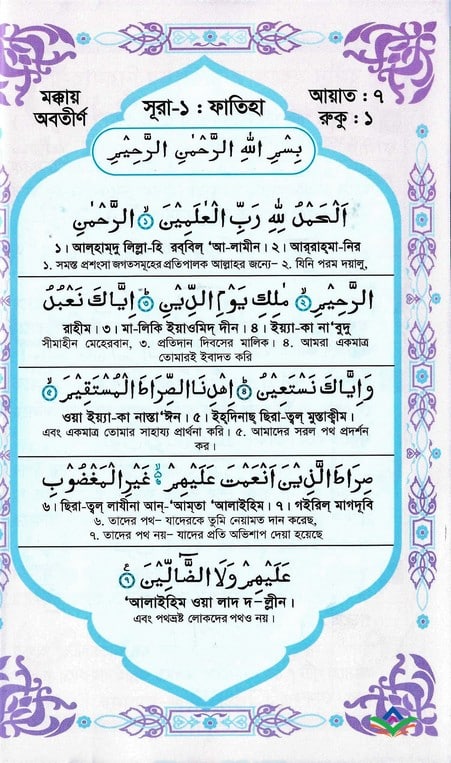 মক্কায়
অবতীর্ণ
সূরা-১ : ফাতিহা
আয়াত : ৭
রুকু : ১
بِسْمِ اللهِ الرَّحْمٰنِ الرَّحِيْمِ
اَلْحَمْدُ لِلّٰهِ رَبِّ الْعٰلَمِيْنَ ۝١ الرَّحْمٰنِ
১। আল্‌হাম্‌দু লিল্লা-হি রব্‌বিল্ ‘আ-লামীন। ২। আর্‌রাহ্‌মা-নির
১. সমস্ত প্রশংসা জগতসমূহের প্রতিপালক আল্লাহর জন্যে– ২. যিনি পরম দয়ালু,
الرَّحِيْمِ ۝٢ مٰلِكِ يَوْمِ الدِّيْنِ ۝٣ اِيَّاكَ نَعْبُدُ
রাহীম। ৩। মা-লিকি ইয়াওমিদ্ দীন। ৪। ইয়্যা-কা না‘বুদু
সীমাহীন মেহেরবান, ৩. প্রতিদান দিবসের মালিক। ৪. আমরা একমাত্র
তোমারই ইবাদত করি
وَاِيَّاكَ نَسْتَعِيْنُ ۝٤ اِهْدِنَا الصِّرَاطَ الْمُسْتَقِيْمَ ۝٥
ওয়া ইয়্যা-কা নাস্তা‘ঈন। ৫। ইহ্‌দিনাছ্ ছিরা-ত্বল্ মুস্তাক্বীম।
এবং একমাত্র তোমার সাহায্য প্রার্থনা করি। ৫. আমাদের সরল পথ প্রদর্শন
কর।
صِرَاطَ الَّذِيْنَ اَنْعَمْتَ عَلَيْهِمْ ۝٦ غَيْرِ الْمَغْضُوْبِ
৬। ছিরা-ত্বল্ লাযীনা আন্-‘আম্‌তা ‘আলাইহিম। ৭। গইরিল্ মাগদূবি
৬. তাদের পথ– যাদেরকে তুমি নেয়ামত দান করেছ,
৭. তাদের পথ নয়– যাদের প্রতি অভিশাপ দেয়া হয়েছে
عَلَيْهِمْ وَلَا الضَّآلِّيْنَ ۝٧
‘আলাইহিম ওয়া লাদ দ–ল্লীন।
এবং পথভ্রষ্ট লোকদের পথও নয়।